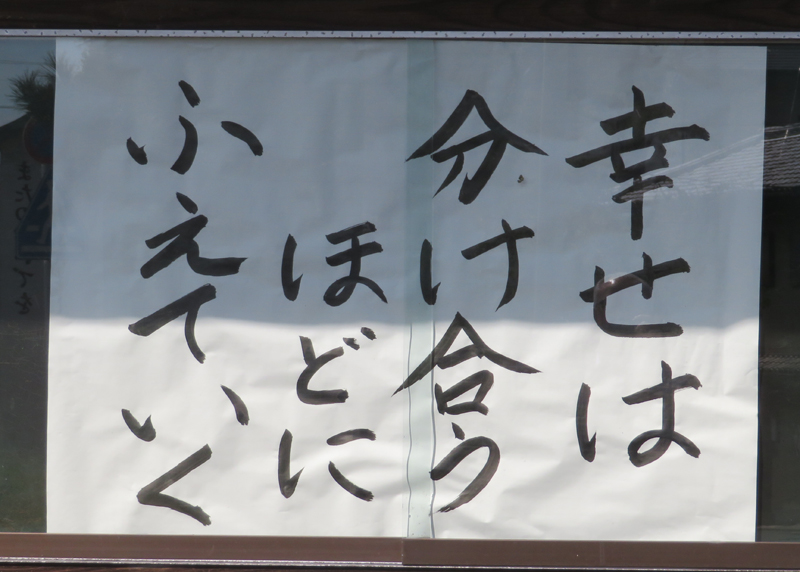 幸せは
分け合う
ほどに
ふえていく